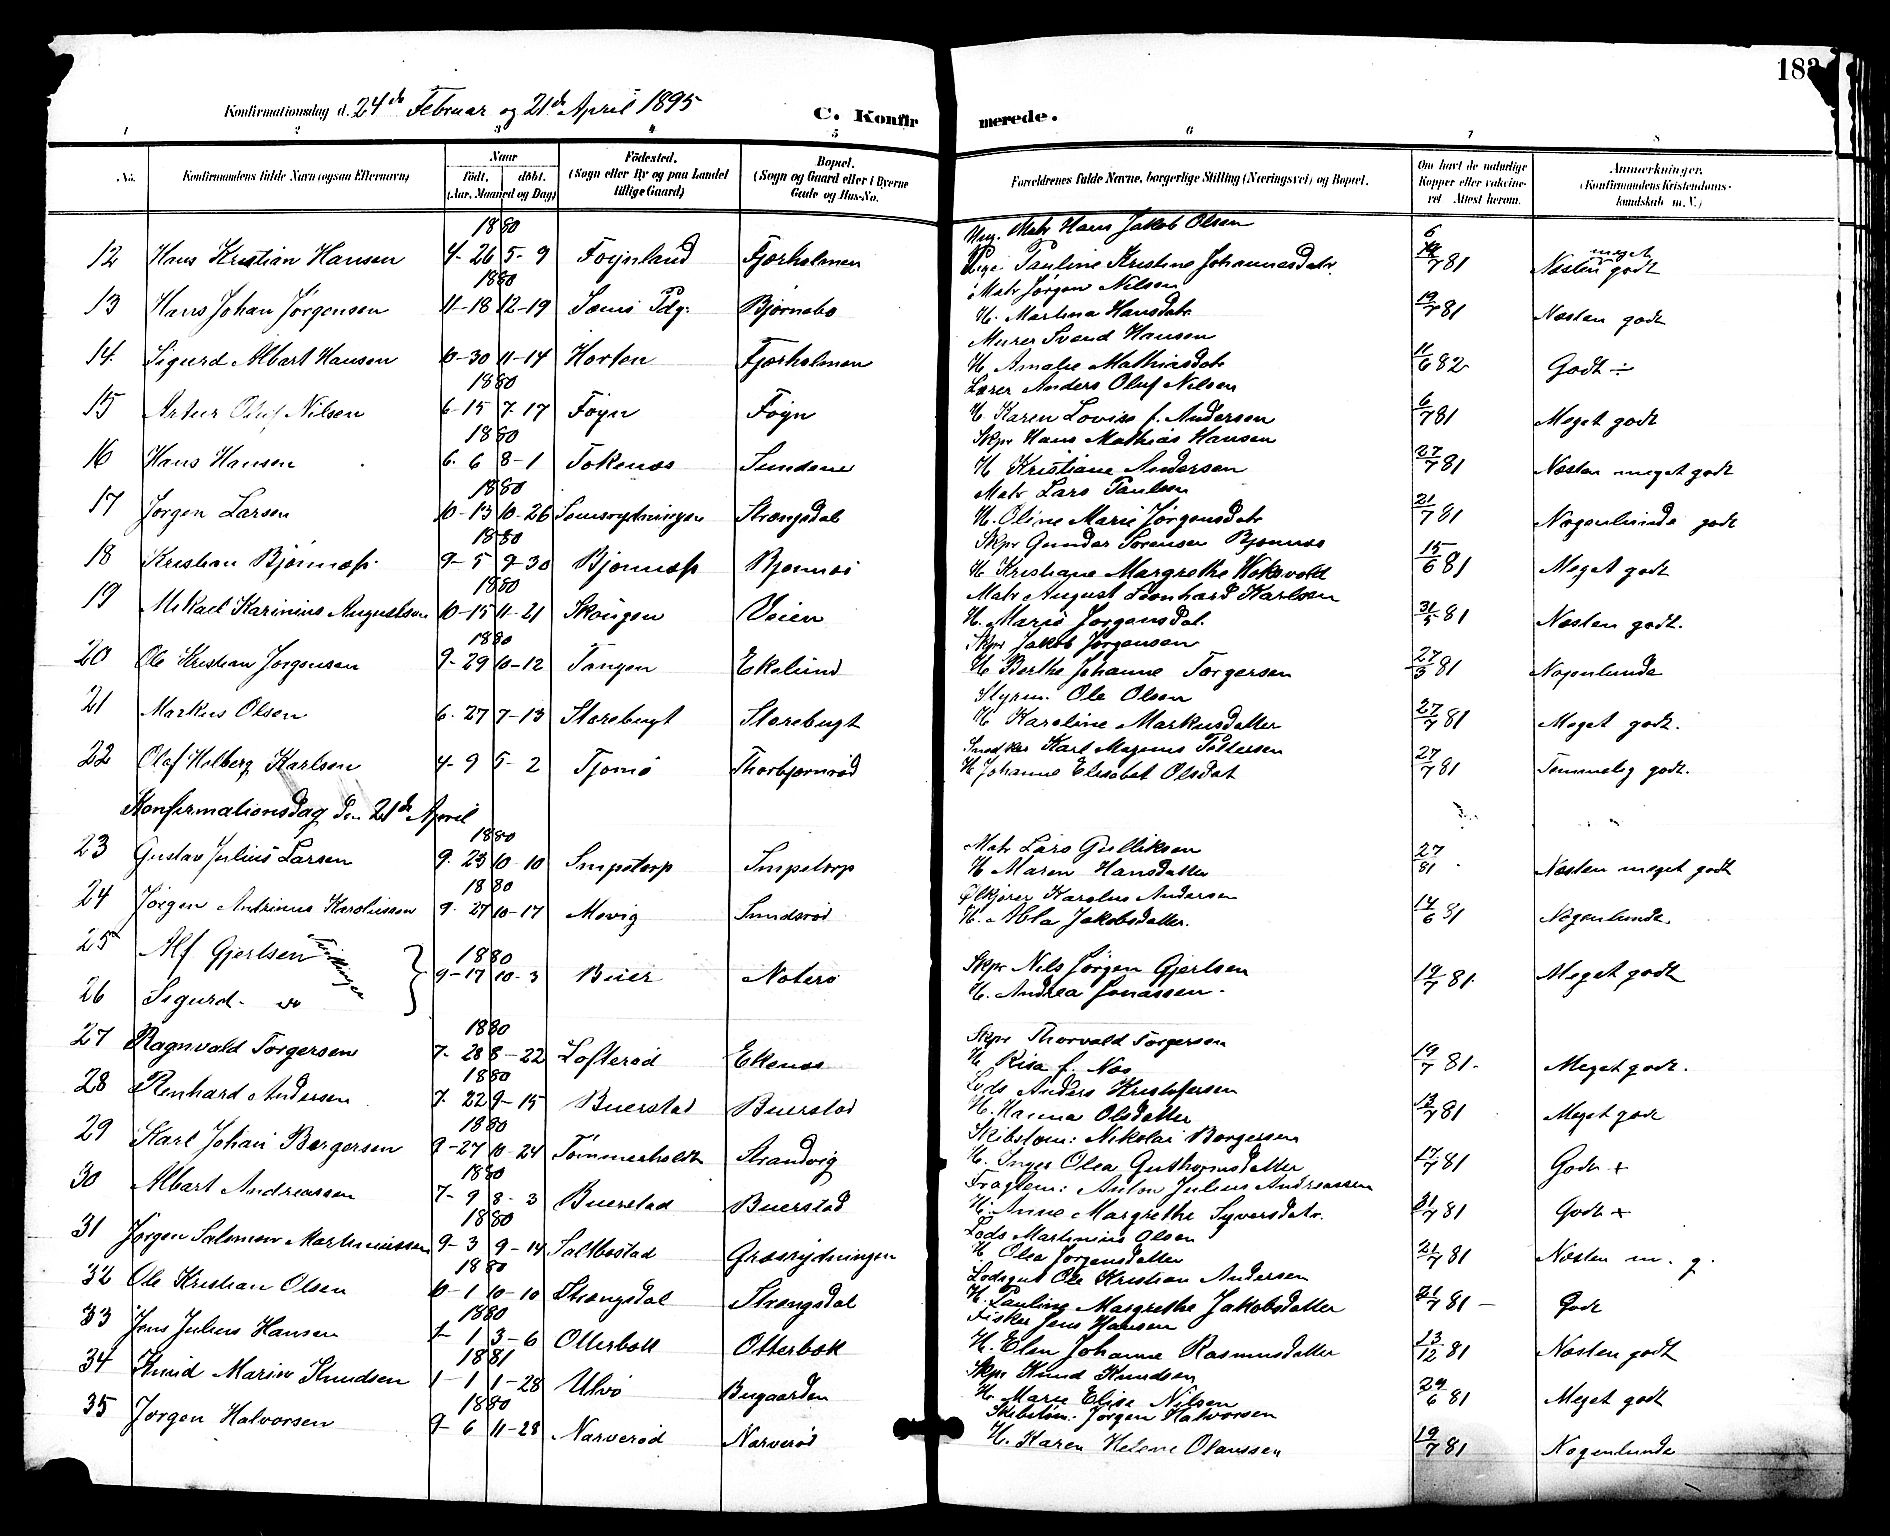 183
Konfirmationsdag d. 24de Februar og 21de April 1895
C. Konfirmerede.
1 2 3 4 5 6 7 8
No.
Konfirmandens fulde Navn (ogsaa Efternavn)
Naar
Født. døbt.
(Aar, Maaned og Dag)
Fødested.
(Sogn eller By og paa Landet tillige Gaard)
Bopæl.
(Sogn og Gaard eller i Byerne Gade og Hus-No.
Forældrenes fulde Navne, borgerlige Stilling (Næringsvei) og Bopæl.
Om havt de naturlige Kopper eller vakcineret Attest herom.
Anmerkninger.
(Konfirmandens Kristendomskundskab m. V.)
1880
Ung. Matr Hans Jakob Olsen
12 Hans Kristian Hansen 4-26 5-9 Foynland Fjærholmen Pige. Pauline Kristine Johannesdatr. 81 Næsten meget godt
1880
Matr Jørgen Nilsen
13 Hans Johan Jørgensen 11-18 12-19 Sems Pdg. Bjørnebo H. Martina Hansdatr 19/7 81 Næsten godt
Murer Svend Hansen
14. Sigurd Albert Hansen 10-30 11-14 Horten Fjærholmen H. Amalie Mathiasdatr 11/6 82 Godt ÷
1880
Lærer Anders Oluf Nilsen
15 Artur Oluf Nilsen 6-15 7-17 Föyn Föyn H Karen Lovise f. Andersen 6/7 81 Meget godt
1880
Skpr Hans Mathias Hansen
16 Hans Hansen 6-6 8-1 Tokenæs Sundene H Kristiane Andersen 27/7 81 Næsten meget godt
1880
Matr Lars Paulsen
17 Jørgen Larsen 10-13 10-26 Semsrydningen Strængsdal H. Oline Marie Jørgensdatr 21/7 81 Nogenlunde godt
1880
Skpr Gunder Sørensen Bjønnæs
18 Kristian Bjønnæss. 9-5 9-30 Bjønnæss Bjønnæs H Kristiane Margrethe Wokvold 15/6 81 Meget godt
1880
Matr August Leonhard Karlsen
19 Mikael Karinius Augustsen 10-15 11-21 Skougen Veien H. Marie Jørgensdat. 31/5 81 Næsten godt.
1880
Skpr Jakob Jørgensen
20 Ole Kristian Jørgensen 9-29 10-12 Tangen Ekelund H Berthe Johanne Torgersen 27/3 81 Nogenlunde
Styrm. Ole Olsen
21 Markus Olsen 6-27 7-13 Storebugt Storebugt H Karoline Markusdatter 27/7 81 Meget godt.
Snedker Karl Magnus Pettersen
22 Olaf Holberg Karlsen 4-9 5-2 Tjømö Thorbjørnrød H Johanne Elisabet Olsdat 27/7 81 Temmelig godt.
Konfirmationsdag den 21de April
1880
Matr Lars Gulliksen
23 Gustav Julius Larsen 9-23 10-10 Smpstorp Smpstorp H Maren Hansdatter 27/81 Næsten meget godt
1880
Ølkjører Karolus Andersen
24 Jörgen Andrinus Karolussen 9-27 10-17 Movig Sundsrød H. Abla Jakobsdatter. 14/6 81 Nogenlunde.
25 Alf Gjertsen Tvillinger 1880 9-17 10-3 Buer Noterø Skpr Nils Jørgen Gjertsen 19/7 81. Meget godt
26 Sigurd - do H. Andrea Jonassen.
1880
Skpr Thorvald Torgersen
27 Ragnvald Torgersen 7-28 8-22 Lofterød Ekenæs H Risa f. Næs 19/7 81. Meget godt.
1880
Lods Anders Kristofersen
28 Renhard Andersen 7-22 9-15 Buerstad Buerstad H. Hanna Olsdatter 13/7 81 Meget godt
1880
Skibstøm: Nikolai Børgersen
29 Karl Johan Børgersen 9-27 10-24 Tømmerholdt Strandvig H. Inger Olea Guthormsdatter 17/7 81 Godt +
1880
Fragtem: Anton Julius Andreassen
30 Albert Andreassen 7-9 8-3 Buerstad Buerstad H. Anne Margrethe Syversdatr. 21/7 81 Godt +
1880
Lods Martinius Olsen
31 Jørgen Salomon Martiniussen 9-3 9-14 Saltbostad Græsrydningen H Olea Jørgensdatter 21/7 81 Næsten m. g.
1880
Lodsgut Ole Kristian Andersen
32 Ole Kristian Olsen 10-1 10-10 Strængsdal Strængsdal H. Pauline Margrethe Jakobsdatter 21/7 81 - Godt
1880
Fisker Jens Hansen
33 Jens Julius Hansen 1 3-6 Otterbæk Otterbæk H. Elen Johanne Rasmusdatter 13/12 81 Næsten godt
1881
Skpr Knud Knudsen
34 Knud Marius Knudsen 1-1 1-28 Ulvö Bugaarden H. Marie Elise Nilsen 29/6 81 Meget godt
1880
Skibstøm. Jørgen Halvorsen
35 Jørgen Halvorsen 9-6 11-28 Narverød Narverød H. Karen Helene Olaussen 19/7 81 Nogenlunde